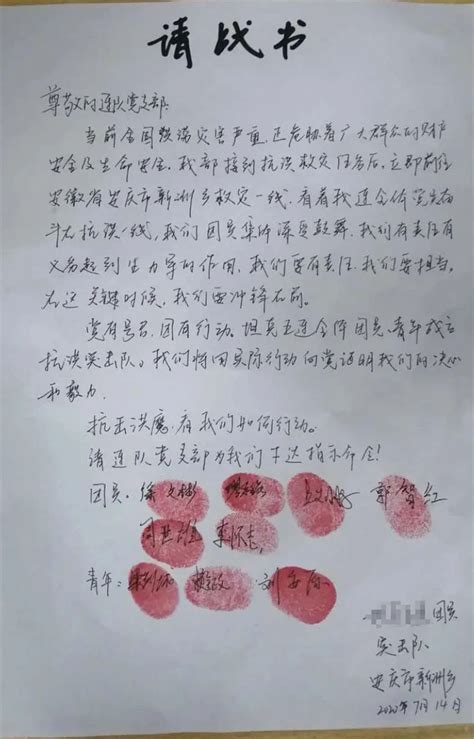 请战书
尊敬的连队党支部:
当前全国洪涝灾害严重,正危胁着广大群众的财产
安全及生命安全,我部接到抗洪救灾任务后,立即前往
安徽省安庆市新洲乡救灾一线,看着我连全体党员奋
斗在抗洪一线,我们团员集体深受鼓舞,我们有责任有
义务起到生力军的作用,我们要有责任,我们要担当,
在这关键时候,我们要冲锋在前。
党有号召,团有行动。坦克五连全体团员、青年成立
抗洪突击队,我们将用实际行动向党证明我们的决心
和毅力。
抗击洪魔,看我们如何行动。
请连队党支部为我们下达指示命令!
团员:徐 郭贺红
青年: 刘
团员
突击队
安庆市新洲乡
2020年7月14日